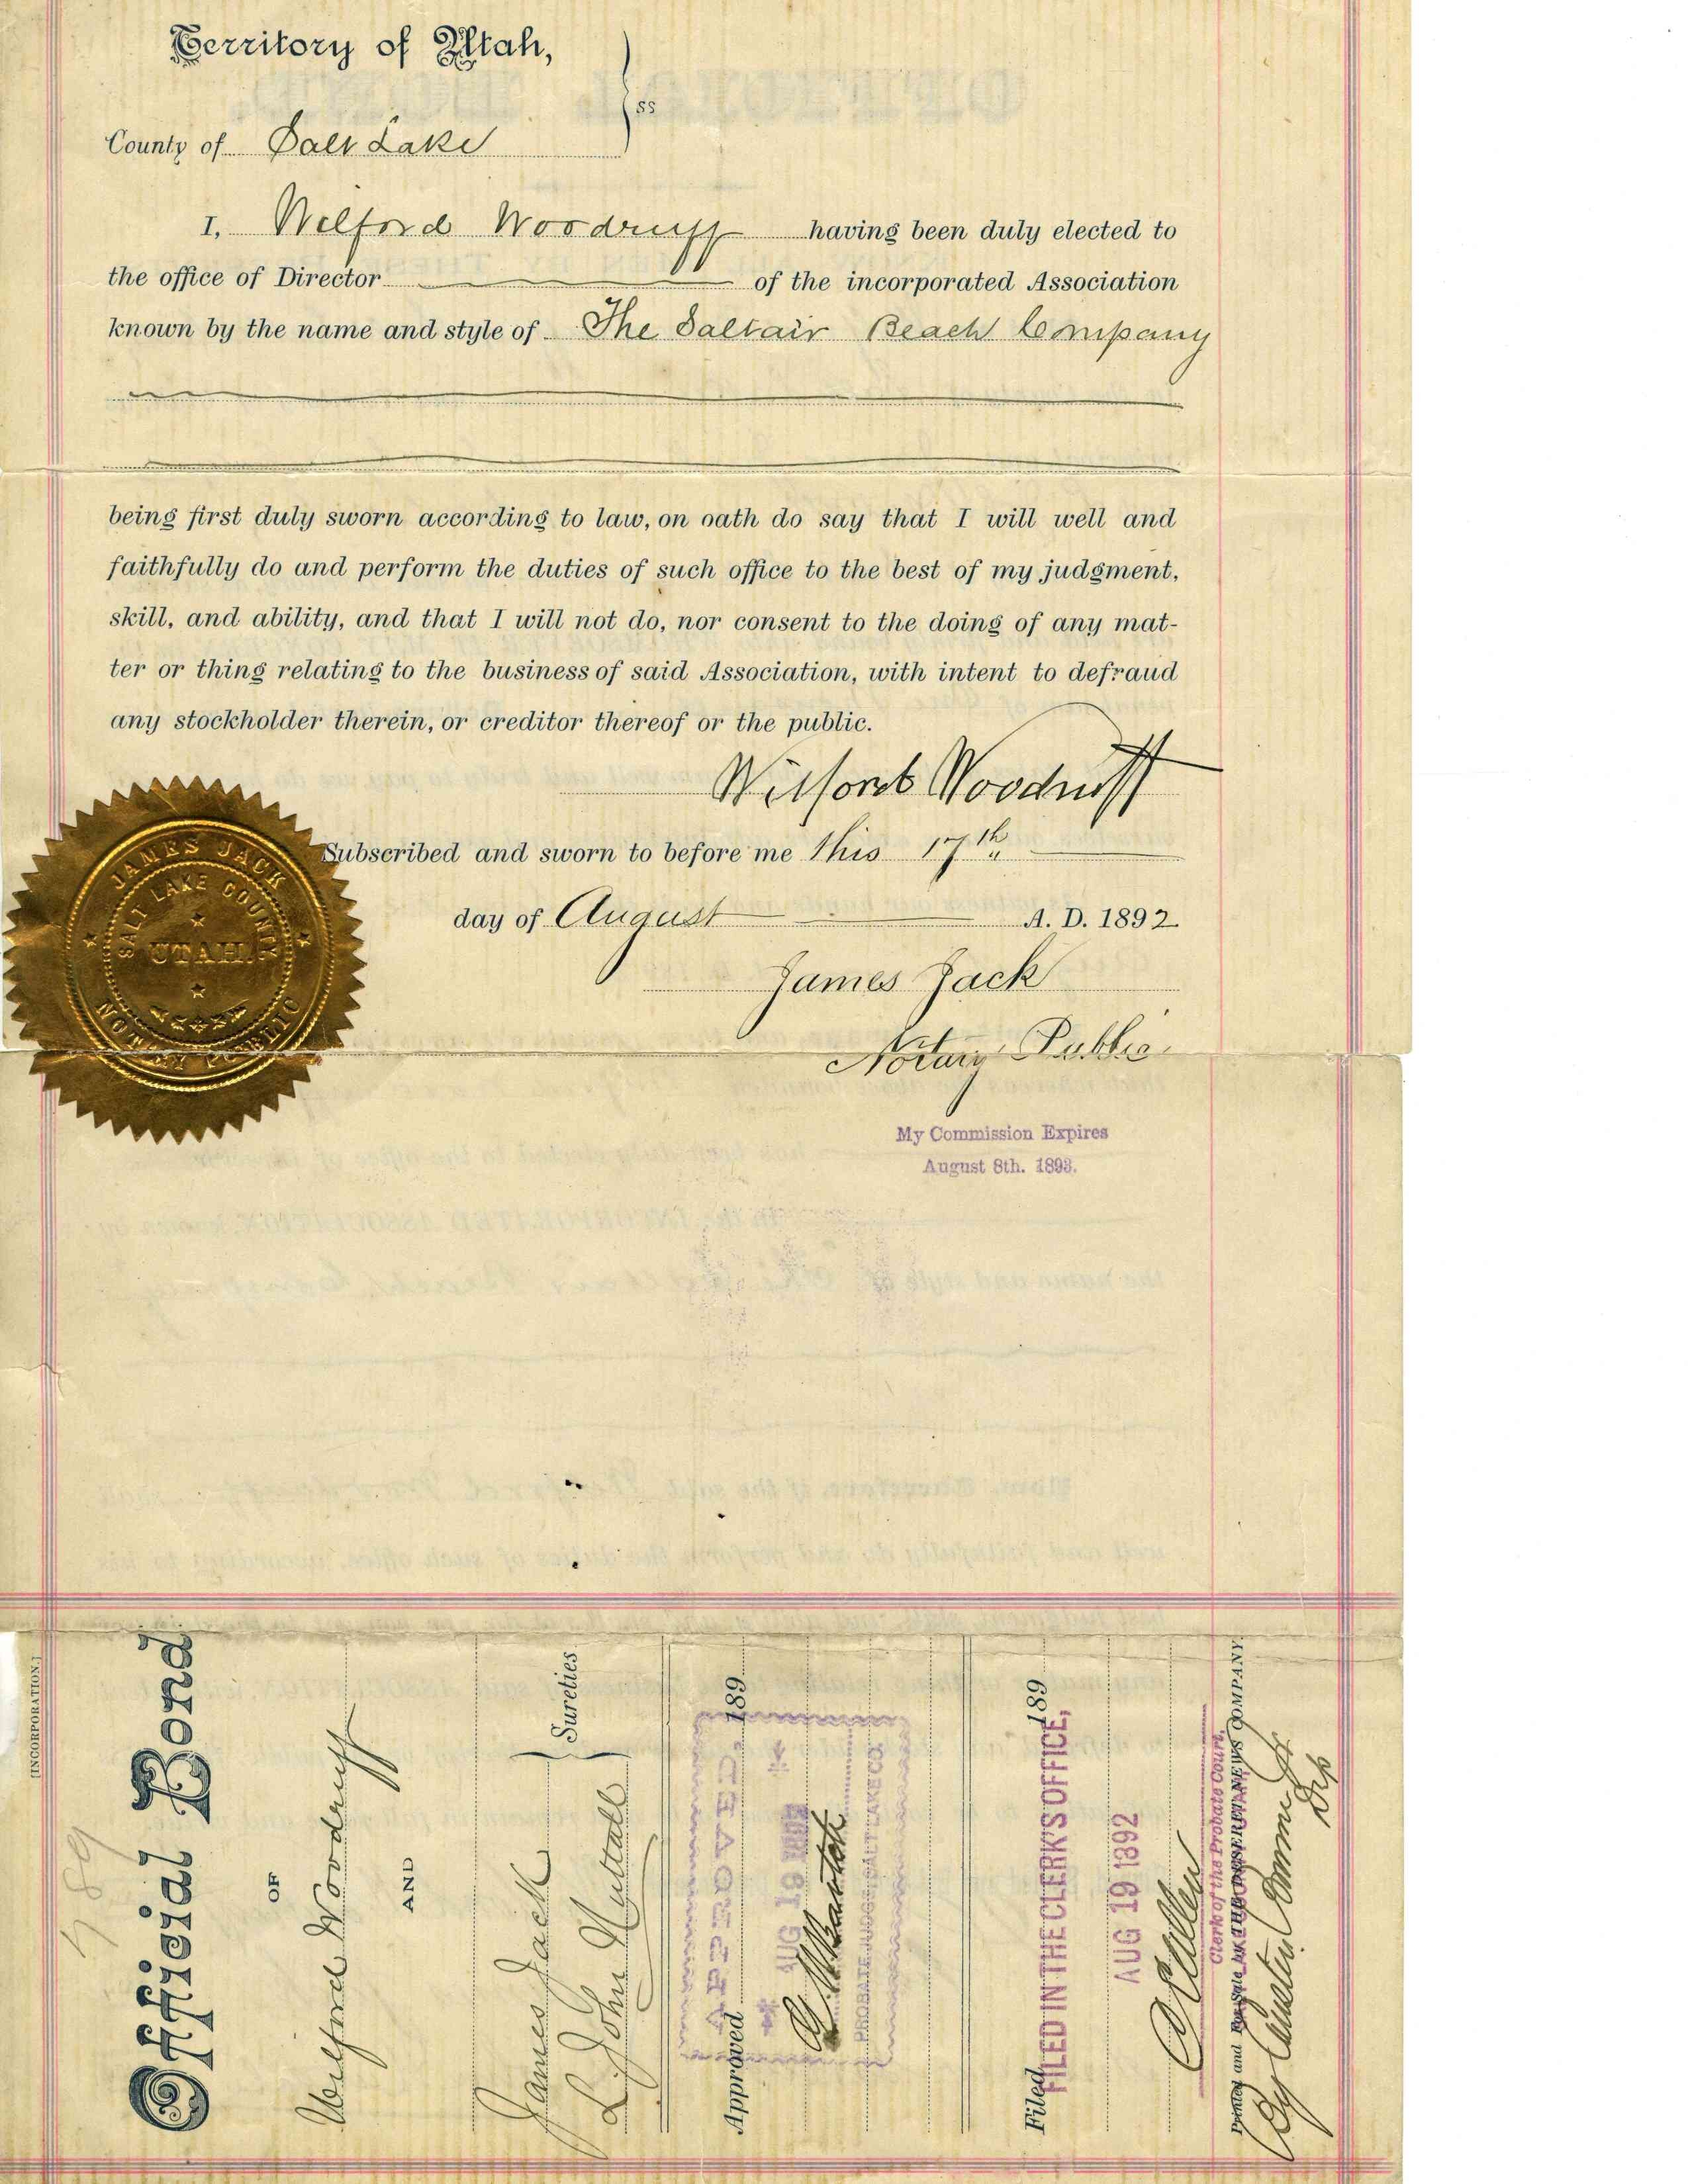 Territory of Utah,
ss
County of Salt Lake
I, Wilford Woodruff having been duly elected to
the office of Director of the incorporated Association
known by the name and style of The Saltair Beach Company
being first duly sworn according to law, on oath do say that I will well and
faithfully do and perform the duties of such office to the best of my judgment,
skill, and ability, and that I will not do, nor consent to the doing of any mat-
ter or thing relating to the business of said Association, with intent to defraud
any stockholder therein, or creditor thereof or the public.
Wilford Woodruff
Subscribed and sworn to before me this 17th
day of August A. D. 1892
James Jack
Notary Public
My Commission Expires
August 8th. 1893.
JAMES JACK
SALT LAKE COUNTY
UTAH
NOTARY PUBLIC
[INCORPORATION.]
489
Official Bond
OF
Wilford Woodruff
AND
James Jack
L. John Nuttall
Sureties
Approved 189
APPROVED.
AUG 19 1892
PROBATE JUDGE SALT LAKE CO.
Filed 189
FILED IN THE CLERK'S OFFICE,
AUG 19 1892
C E Allen
Clerk of the Probate Court,
Printed and For Sale by THE DESERET NEWS COMPANY.
By